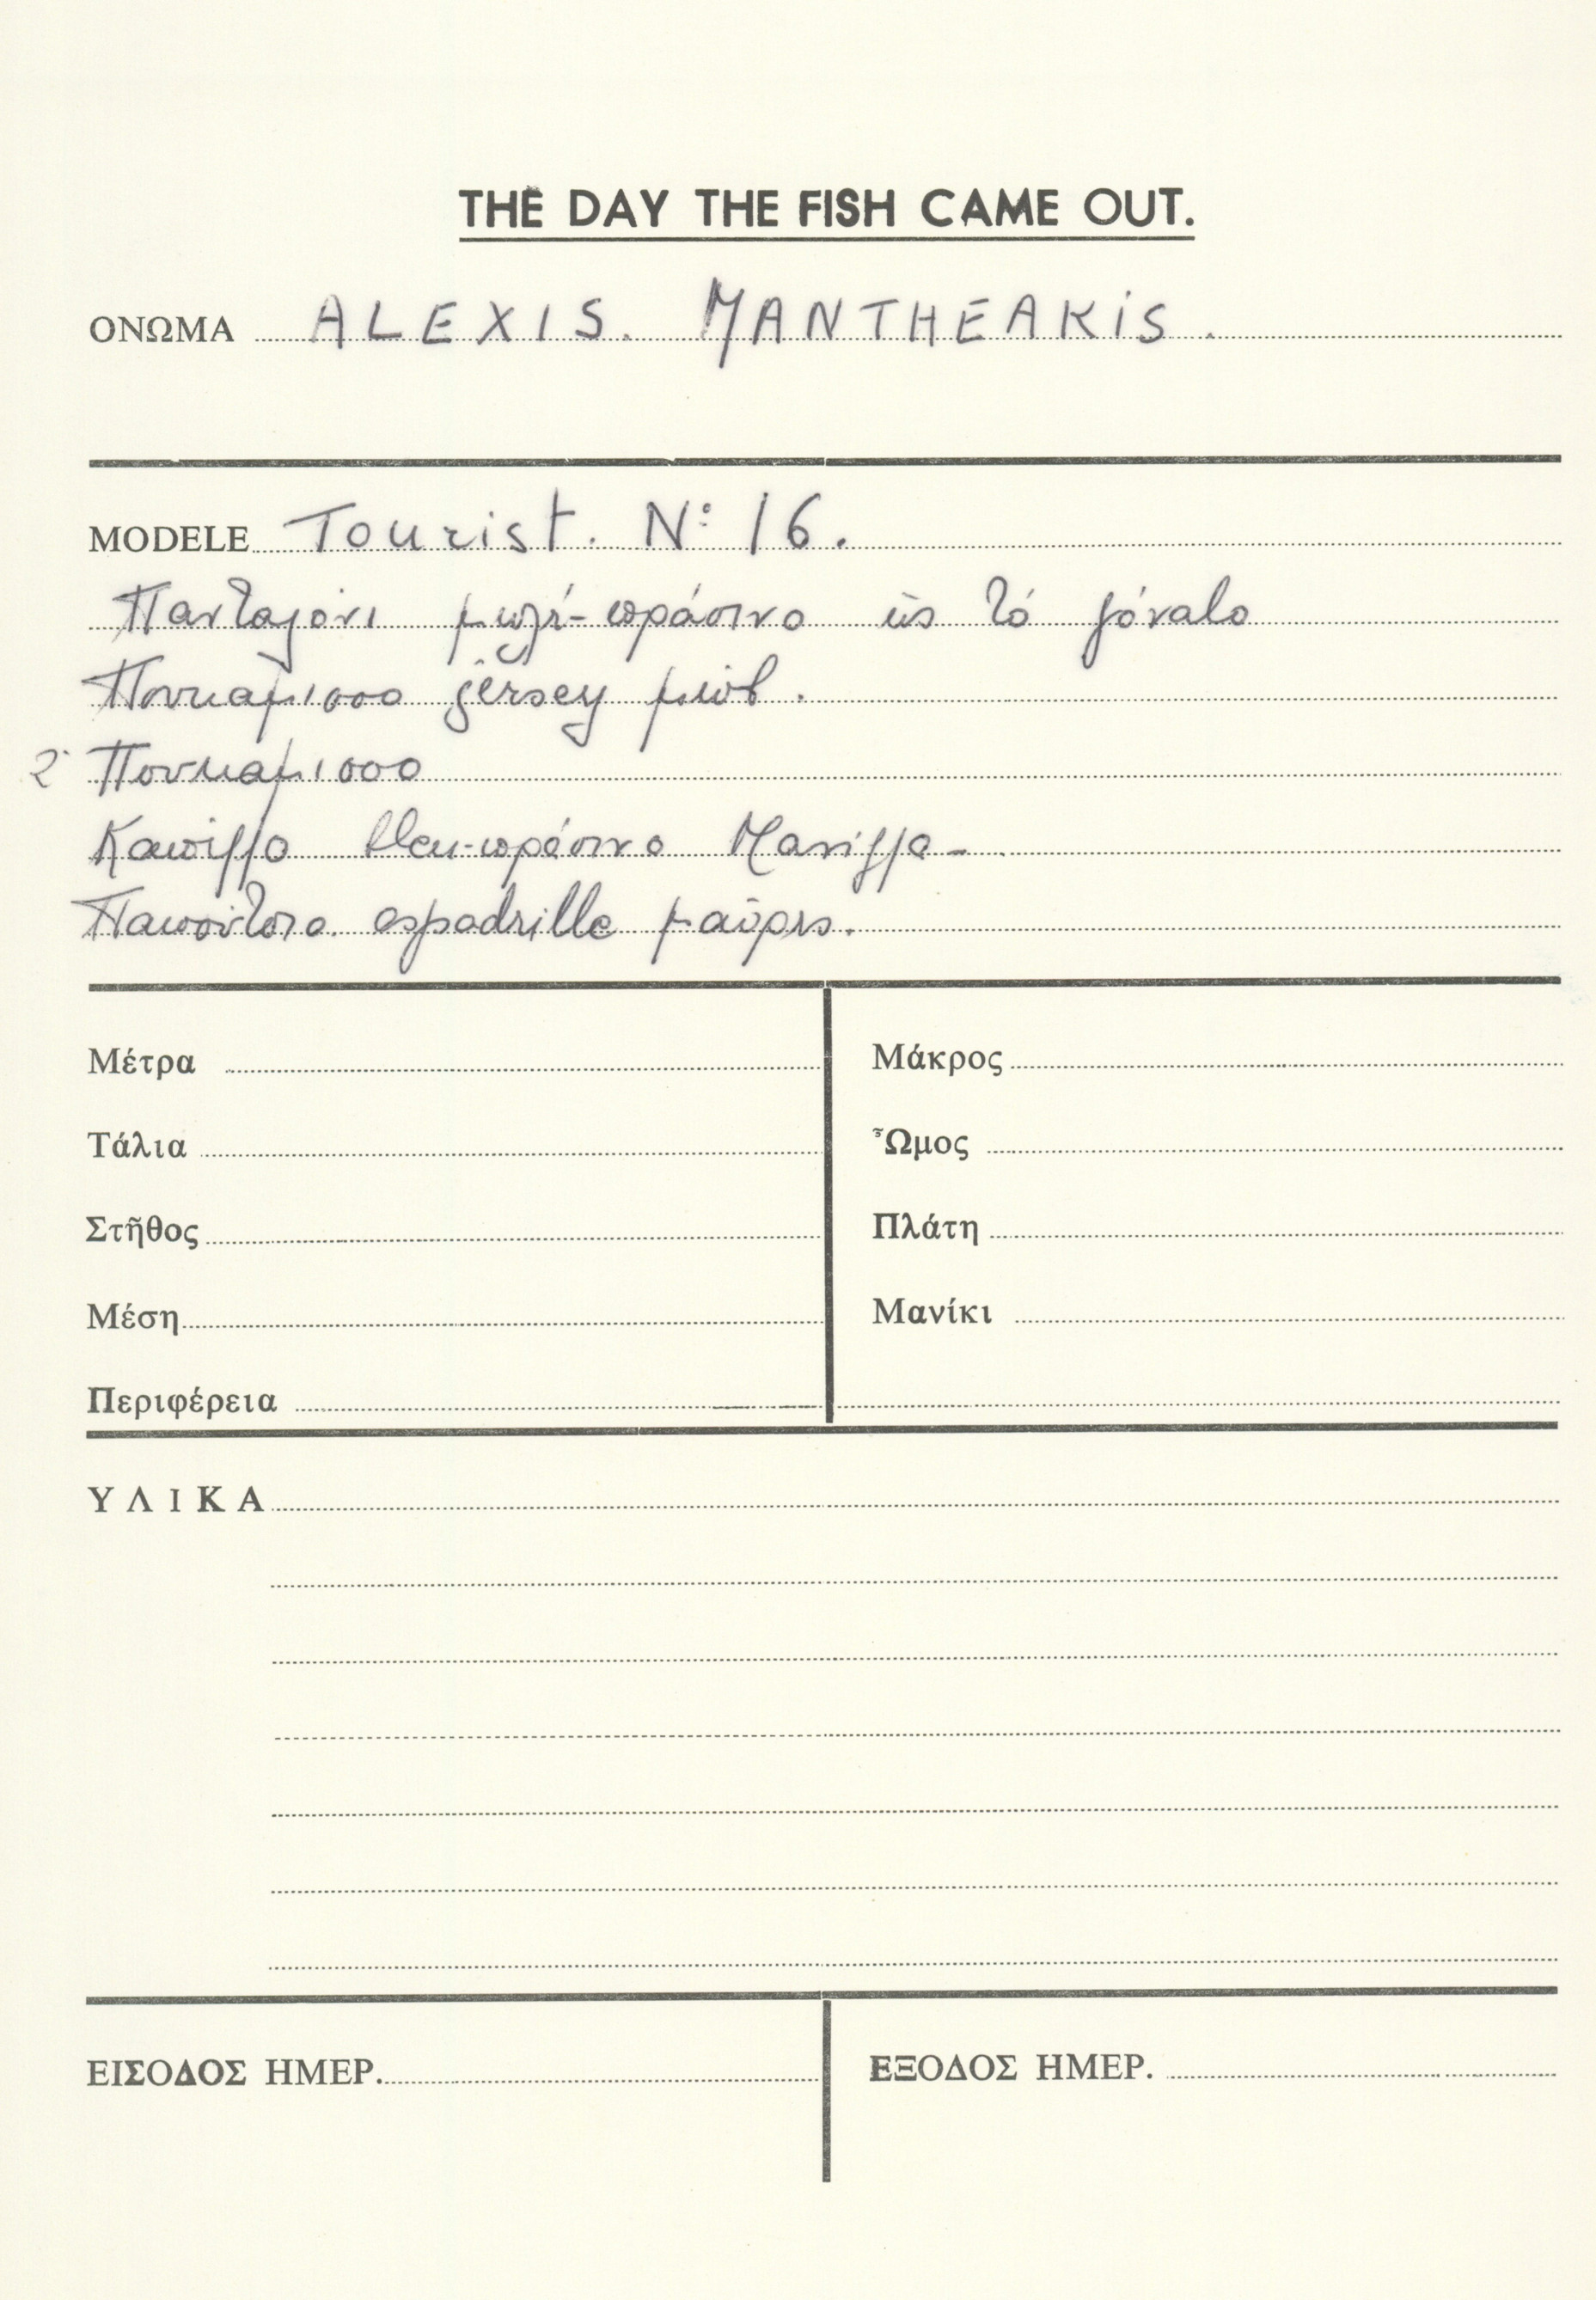 THE DAY THE FISH CAME OUT.
ΟΝΩΜΑ ALEXIS. MANTHEAKIS.
MODELE Tourist. N: 16.
Πανταλόνι μπλέ-πράσινο ὡς τό γόνατο
Πουκάμισσο jersey μώβ.
2 Πουκάμισσο
Καπέλλο bleu-πράσινο Μανίλλα-
Παπούτσια espadrille μαῦρες.
Μέτρα
Μάκρος
Τάλια
Ὦμος
Στῆθος
Πλάτη
Μέση
Μανίκι
Περιφέρεια
ΥΛΙΚΑ
ΕΙΣΟΔΟΣ ΗΜΕΡ.
ΕΞΟΔΟΣ ΗΜΕΡ.